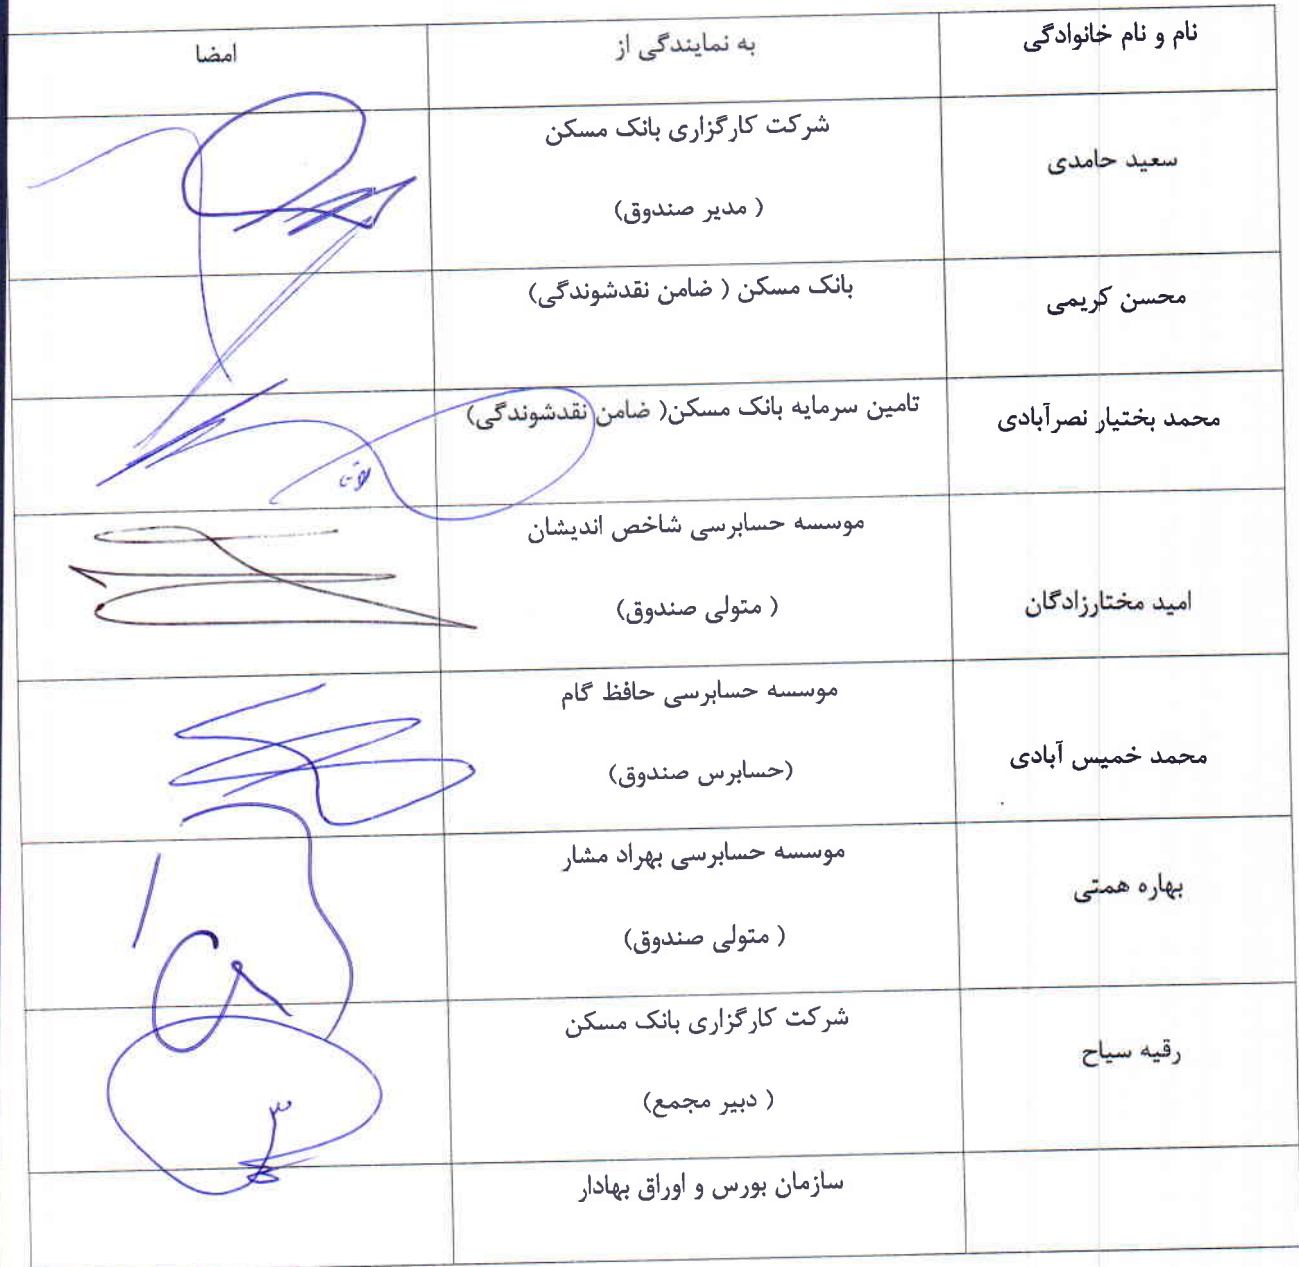 نام و نام خانوادگی
به نمایندگی از
امضا
سعید حامدی
شرکت کارگزاری بانک مسکن
( مدیر صندوق)
محسن کریمی
بانک مسکن ( ضامن نقدشوندگی)
محمد بختیار نصرآبادی
تامین سرمایه بانک مسکن( ضامن نقدشوندگی)
امید مختارزادگان
موسسه حسابرسی شاخص اندیشان
( متولی صندوق)
محمد خمیس آبادی
موسسه حسابرسی حافظ گام
(حسابرس صندوق)
بهاره همتی
موسسه حسابرسی بهراد مشار
( متولی صندوق)
رقیه سیاح
شرکت کارگزاری بانک مسکن
( دبیر مجمع)
سازمان بورس و اوراق بهادار